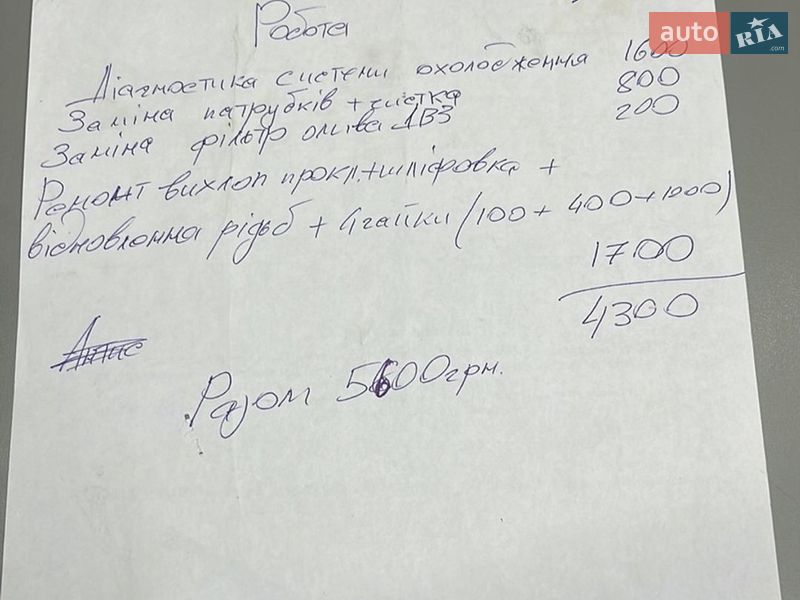 auto RIA.com
Робота
Діагностика системи охолодження 1600
Заміна патрубків + чистка 800
Заміна фільтр олива ДВЗ 200
Ремонт вихлоп прокл.+шліфовка +
відновлення різьб + 4 гайки (100 + 400 + 1000)
1700
4300
Разом 5600 грн.